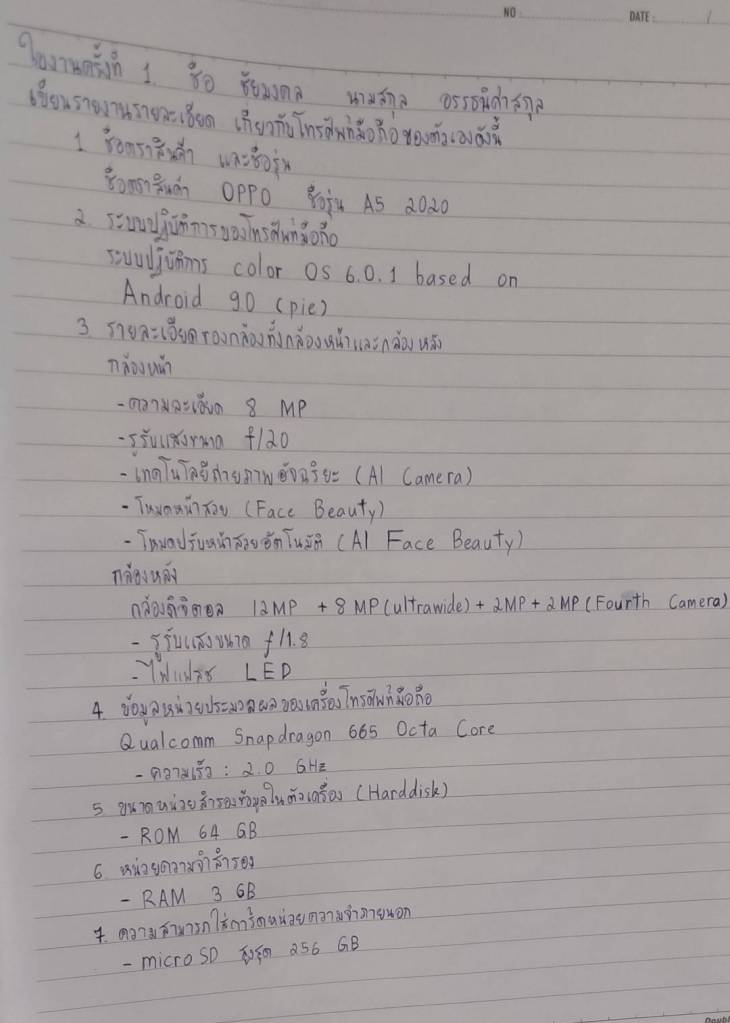 NO :
DATE : /
ใบงานครั้งที่ 1. ชื่อ ชัยมงคล นามสกุล อรรธนิศาสกุล
เขียนรายงานรายละเอียด เกี่ยวกับโทรศัพท์มือถือของตัวเองดังนี้
1 ชื่อตราสินค้า และชื่อรุ่น
ชื่อตราสินค้า OPPO ชื่อรุ่น A5 2020
2. ระบบปฏิบัติการของโทรศัพท์มือถือ
ระบบปฏิบัติการ color OS 6.0.1 based on
Android 9.0 (pie)
3 รายละเอียดของกล้องทั้งกล้องหน้าและกล้องหลัง
กล้องหน้า
- ความละเอียด 8 MP
- รูรับแสงขนาด f/2.0
- เทคโนโลยีถ่ายภาพอัจฉริยะ (AI Camera)
- โหมดหน้าสวย (Face Beauty)
- โหมดปรับหน้าสวยอัตโนมัติ (AI Face Beauty)
กล้องหลัง
กล้องดิจิตอล 12MP + 8 MP(ultrawide) + 2MP + 2MP (Fourth Camera)
- รูรับแสงขนาด f/1.8
- ไฟแฟลช LED
4. ข้อมูลหน่วยประมวลผลของเครื่องโทรศัพท์มือถือ
Qualcomm Snapdragon 665 Octa Core
- ความเร็ว : 2.0 GHz
5 ขนาดหน่วยสำรองข้อมูลในตัวเครื่อง (Harddisk)
- ROM 64 GB
6. หน่วยความจำสำรอง
- RAM 3 GB
7. ความสามารถใส่การ์ดหน่วยความจำภายนอก
- micro SD สูงสุด 256 GB